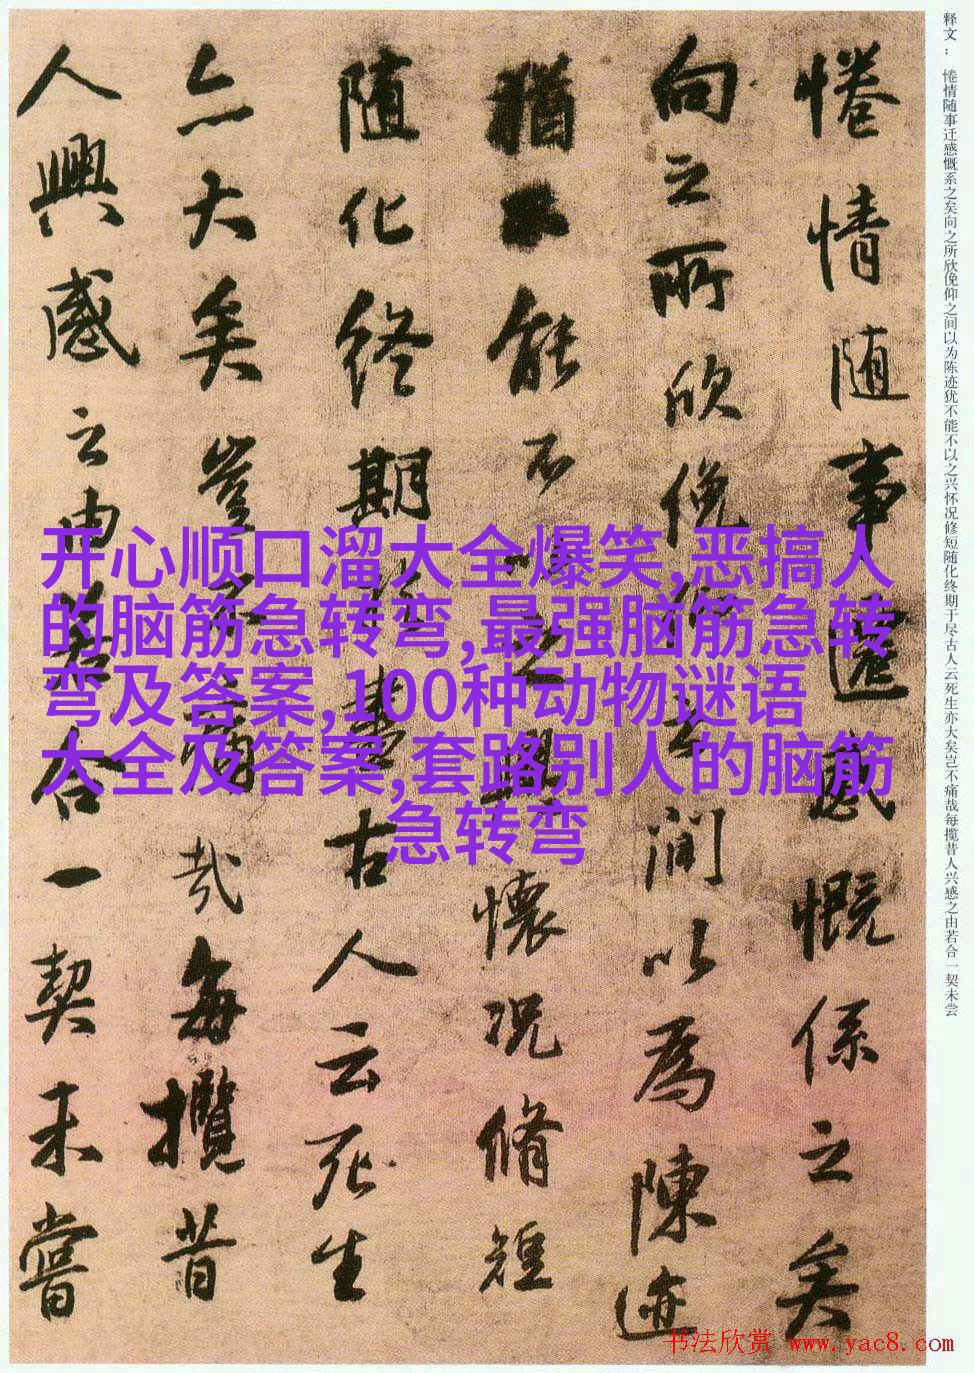 释文：惓情随事迁感慨系之矣向之所欣俛仰之间以为陈迹犹不能不以之兴怀况修短随化终期于尽古人云死生亦大矣岂不痛哉每揽昔人兴感之由若合一契未尝
惓情随事遷感慨係之矣
向之所欣俛仰之間以為陳迹
猶不能不以之興懷況脩短
随化終期於盡古人云死生
亦大矣豈不痛哉每攬昔
人興感之由若合一契未嘗
开心顺口溜大全爆笑,恶搞人
的脑筋急转弯,最强脑筋急转
弯及答案,100种动物谜语
大全及答案,套路别人的脑筋
急转弯
书法欣赏 www.yac8.com